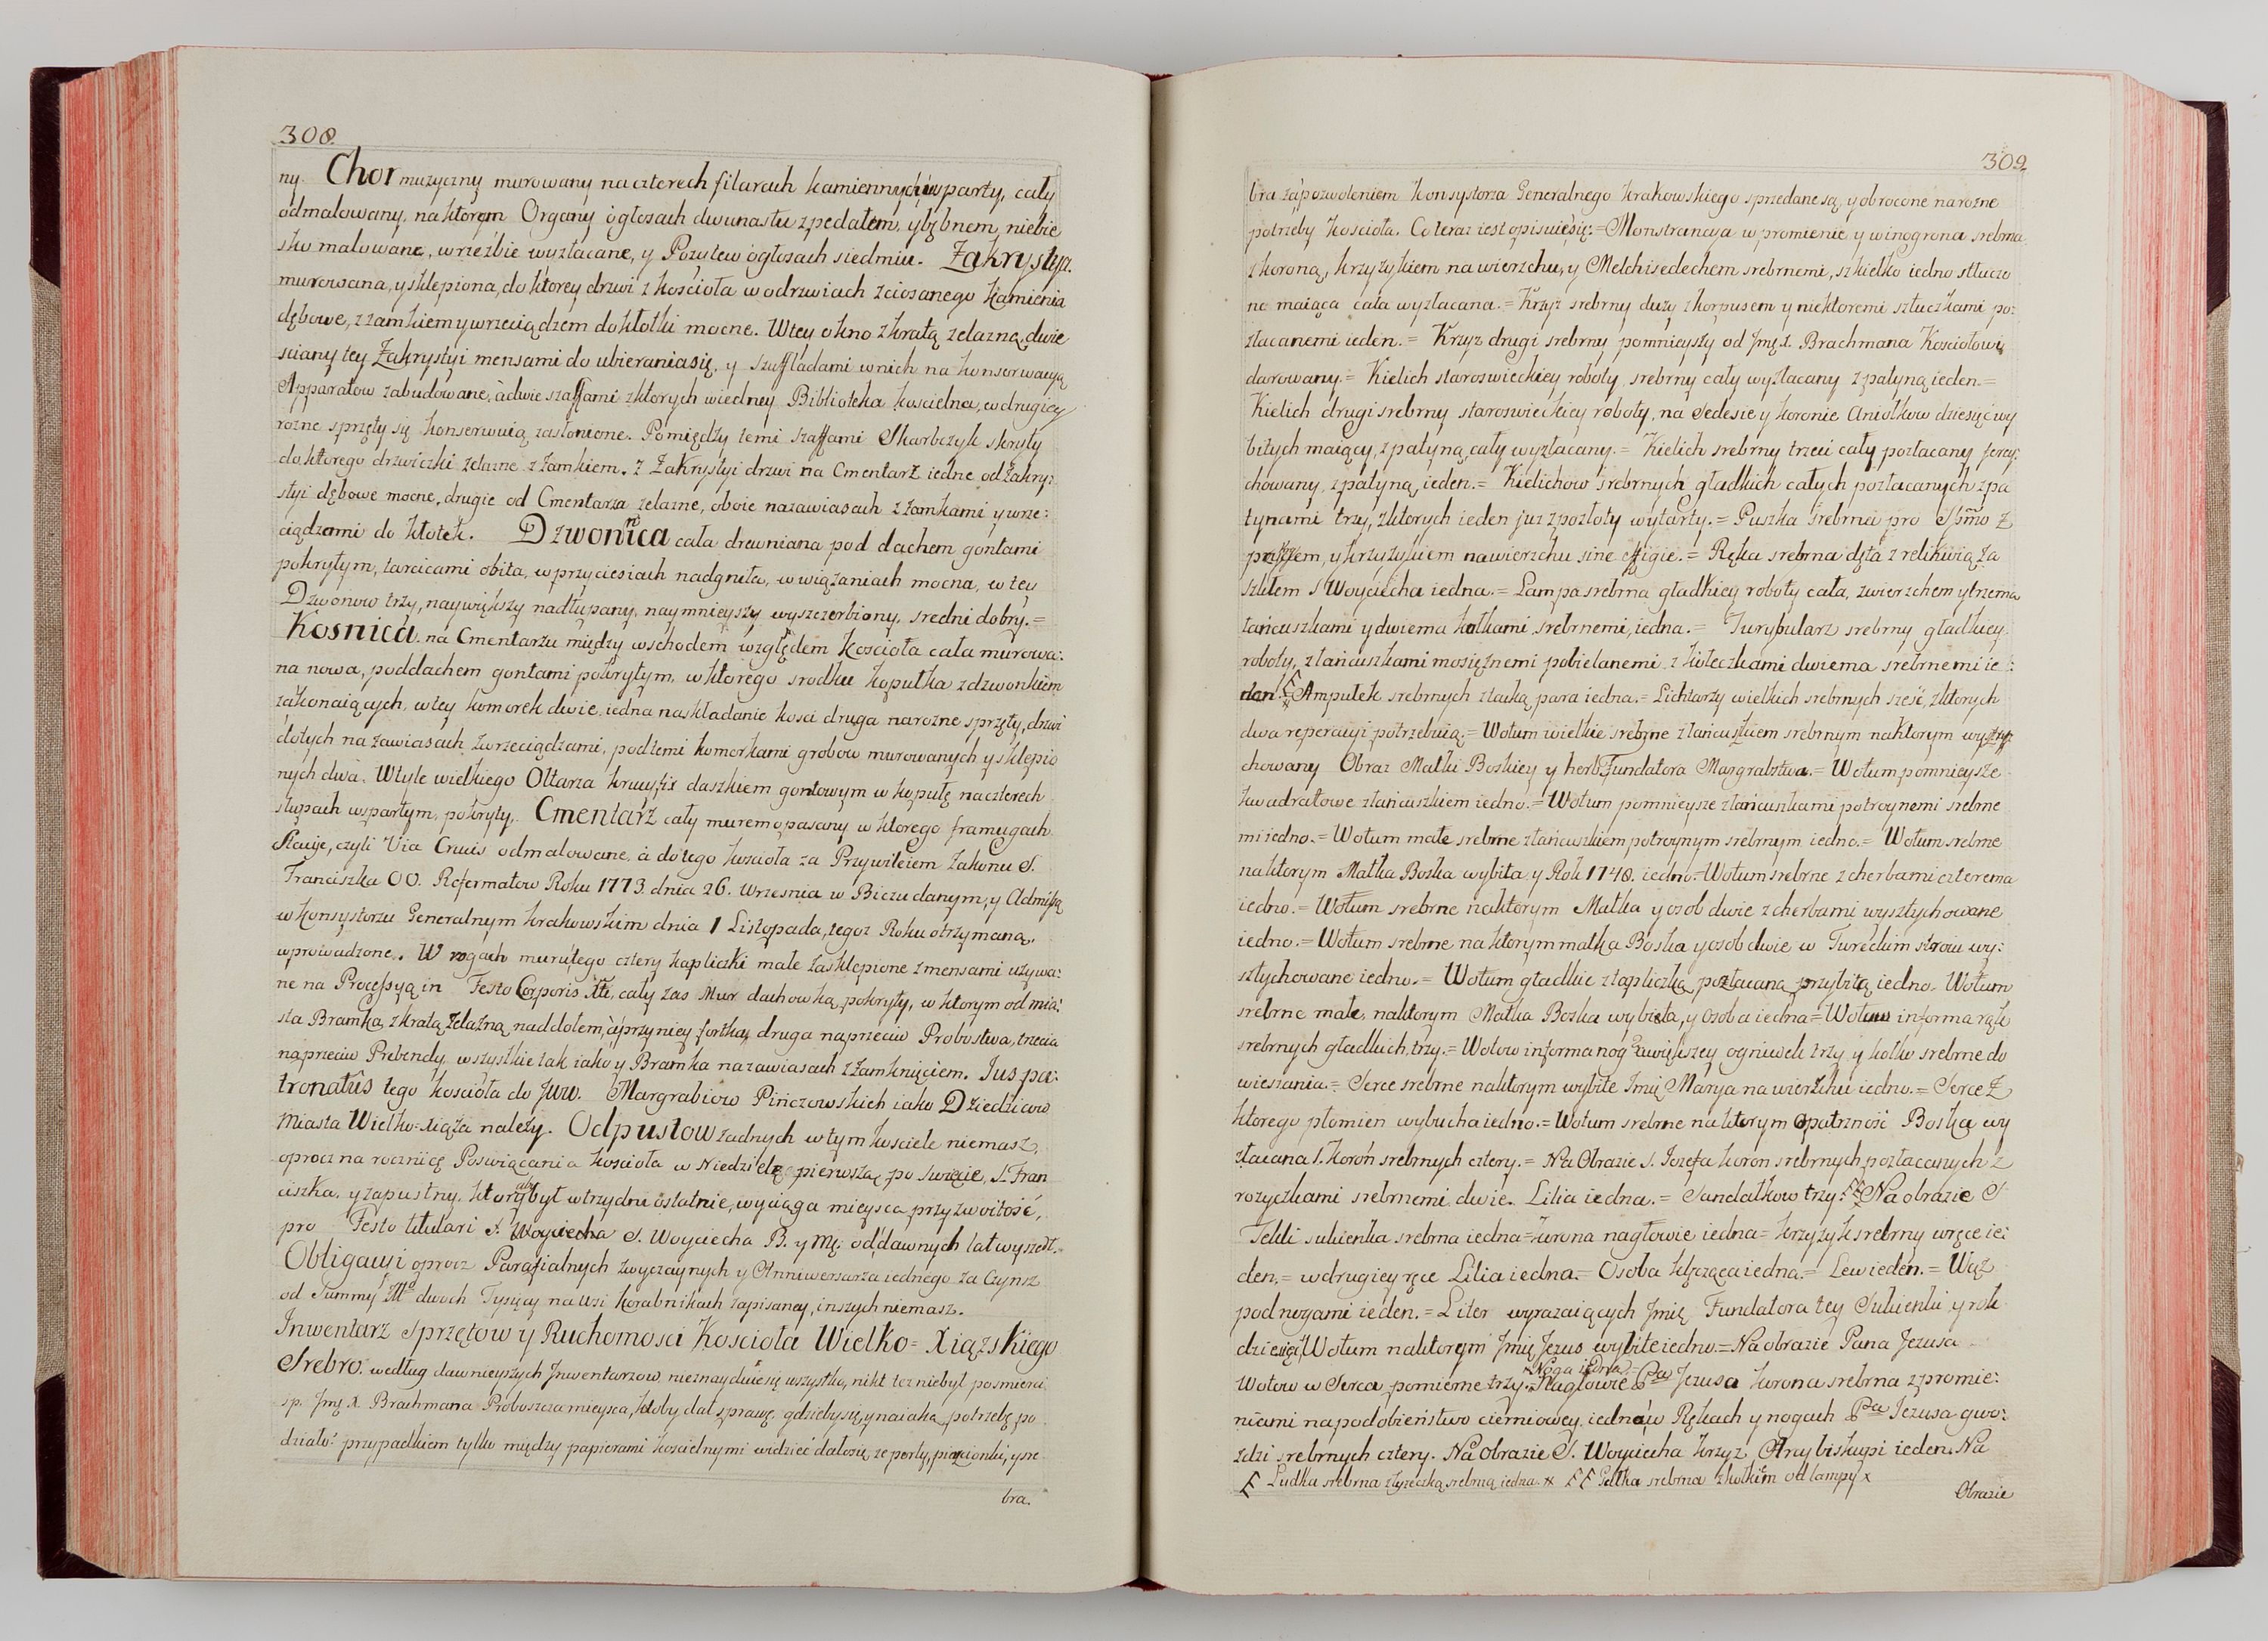 308.
ny. Chor muzyczny murowany na czterech filarach kamiennych wsparty, cały
odmalowany, na ktorym Organy o głosach dwunastu z pedałem, y bębnem, niebie
sko malowane, w rzeźbie wyzłacane, y Pozytew o głosach siedmiu. Zakrystya
murowana, y sklepiona, do ktorey drzwi z kościoła w odrzwiach z ciosanego kamienia
dębowe, z zamkiem y wrzeciądzem do kłotki mocne. W tey okno z kratą zelazną, dwie
sciany tey Zakrystyi mensami do ubierania się, y szuffladami w nich na konserwacyą
Apparatow zabudowane, a dwie szaffami z ktorych w iedney Biblioteka koscielna, w drugiey
rozne sprzęty się konserwuią zasłonione. Pomiędzy temi szaffami Skarbczyk skryty
do ktorego drzwiczki zelazne z zamkiem. Z Zakrystyi drzwi na Cmentarz iedne od Zakry:
styi dębowe mocne, drugie od Cmentarza zelazne, oboie na zawiasach z zamkami y wrze:
ciądzami do kłotek. Dzwonnica cała drewniana pod dachem gontami
pokrytym, tarcicami obita, w przyciesiach nadgniła, w wiązaniach mocna, w tey
Dzwonow trzy, naywiększy nadłupany, naymnieyszy wyszczerbiony, sredni dobry.=
Kosnica na Cmentarzu między wschodem względem Kościoła cała murowa:
na nowa, pod dachem gontami pokrytym, w ktorego srodku kopułka z dzwonkiem
za konaiących, w tey komorek dwie, iedna na składanie kosci druga na rozne sprzęty, drzwi
do tych na zawiasach z wrzeciądzami, pod temi komorkami grobow murowanych y sklepio
nych dwa. W tyle wielkiego Ołtarza krucyfix daszkiem gontowym w kopułę na czterech
słupach wspartym, pokryty. Cmentarz cały murem opasany w ktorego framugach
Stacye, czyli Via Crucis odmalowane, a do tego kościoła za Przywileiem Zakonu S.
Franciszka OO. Reformatow Roku 1773 dnia 26. Wrzesnia w Bieczu danym, y Admissą
w Konsystorzu Generalnym Krakowskim dnia 1 Listopada, tegoż Roku otrzymaną,
wprowadzone. W rogach muru tego cztery kapliczki małe zasklepione z mensami używa:
ne na Processyą in Festo Corporis Xti, cały zas Mur dachowką pokryty, w ktorym od mia:
sta Bramka z kratą zelazną nad dołem, a przy niey fortka, druga naprzeciw Probostwa, trzecia
naprzeciw Prebendy, wszystkie tak iako y Bramka na zawiasach z zamknięciem. Jus pa:
tronatûs tego kościoła do Jww. Margrabiow Pińczowskich iako Dziedzicow
Miasta Wielko-Xiąża należy. Odpustow żadnych w tym kosciele niemasz,
oprocz na rocznicę Poswiącania kościoła w Niedzielę pierwszą po Swięcie S. Fran
ciszka, y zapustny, ktory aby był w trzy dni ostatnie, wyciąga mieysca przyzwoitość,
pro Festo titulari S. Woyciecha S. Woyciecha B. y Mę: od dawnych lat wyszedł.=
Obligacyi oprocz Parafialnych zwyczaynych y Anniwersarza iednego za Czynsz
od Summy dwoch Tysięcy na wsi Korabnikach zapisaney, inszych niemasz.
Inwentarz Sprzętow y Ruchomosci Kościoła Wielko=Xiązskiego
Srebro: według dawnieyszych Jnwentarzow nieznayduie się wszystko, nikt tez niebył po smierci
sp. Jmę X. Brachmana Proboszcza mieysca, ktoby dał sprawę, gdzieby się, y na iaką potrzebę po
działo: przypadkiem tylko między papierami kościelnymi widzieć dało się, ze perły, pierzcionki, y sre
bra.
309.
bra za pozwoleniem Konsystorza Generalnego Krakowskiego sprzedane są, y obrocone na rozne
potrzeby Kościoła. Co teraz iest opisuie się:=Monstrancya w promienie y winogrona srebrna
z koroną, krzyżykiem na wierzchu, y Melchisedechem srebrnemi, szkiełko iedno stłuczo
ne maiąca cała wyzłacana.= Krzyz srebrny duży z korpusem y niektoremi sztuczkami po:
złacanemi ieden.= Krzyz drugi srebrny pomnieyszy od Jmę X. Brachmana Kościołowi
darowany.= Kielich staroswieckiey roboty srebrny cały wyzłacany z patyną ieden.=
Kielich drugi srebrny staroswieckiey roboty, na Sedesie y koronie Aniołkow dziesięć wy
bitych maiący, z patyną cały wyzłacany.= Kielich srebrny trzeci cały pozłacany
chowany, z patyną ieden.= Kielichow srebrnych gładkich całych pozłacanych z pa
tynami trzy, z ktorych ieden już z pozłoty wytarty.= Puszka srebrna pro Sſmo z
y krzyżykiem na wierzchu sine effigie.= Ręka srebrna dęta z relikwią za
szkłem S Woyciecha iedna.= Lampa srebrna gładkiey roboty cała, z wierzchem y trzema
łańcuszkami y dwiema kołkami srebrnemi, iedna.= Turybularz srebrny gładkiey
roboty, z łańcuszkami mosiężnemi pobielanemi z kołeczkami dwiema srebrnemi ie:
den. Ampułek srebrnych z tacką para iedna.= Lichtarzy wielkich srebrnych szesć, z ktorych
dwa reperacyi potrzebuią.= Wotum wielkie srebrne z łańcuszkiem srebrnym na ktorym wysty:
chowany Obraz Matki Boskiey y herb Fundatora Margrabstwa.= Wotum pomnieysze
kwadratowe z łańcuszkiem iedno.= Wotum pomnieysze z łańcuszkami potroynemi srebrne
mi iedno.= Wotum małe srebrne z łańcuszkiem potroynym srebrnym iedno.= Wotum srebrne
na ktorym Matka Boska wybita, y Rok 1748. iedno=Wotum srebrne z cherbami czterema
iedno.= Wotum srebrne na ktorym Matka y osob dwie z cherbami wysztychowane
iedno.= Wotum srebrne na ktorym matka Boska y osob dwie w Tureckim stroiu wy:
sztychowane iedno.= Wotum gładkie z tapliczką pozłacaną przybitą iedno. Wotum
srebrne małe, na ktorym Matka Boska wybita, y Osoba iedna=Wotum in forma rąk
srebrnych gładkich, trzy.= Wotow in forma nog z większey ogniwek trzy, y kołko srebrne do
wieszania.= Serce srebrne na ktorym wybite Jmię Marya na wierzchu iedno.= Serce z
ktorego płomien wybucha iedno.= Wotum srebrne na ktorym Opatrznosć Boska wy
złacana 1. Koron srebrnych cztery.= Na Obrazie S. Jozefa koron srebrnych pozłacanych z
rozyczkami srebrnemi dwie. Lilia iedna.= Sandałkow trzy. Na obrazie S
Tekli sukienka srebrna iedna=korona na głowie iedna= krzyżyk srebrny w ręce ie:
den,= w drugiey ręce Lilia iedna.= Osoba klęcząca iedna.= Lew ieden.= Wąz
pod nogami ieden.= Liter wyrazaiących Jmię Fundatora tey Sukienki, y rok
dziesięć, Wotum na ktorym Jmię Jezus wybite iedno.=Na obrazie Pana Jezusa
× Noga iedna.=
Wotow w Serca pomierne trzy. Na głowie Pa Jezusa korona srebrna z promie:
niami na podobieństwo cierniowey, iedna, w Rękach y nogach Pa Jezusa gwo:
zdzi srebrnych cztery. Na Obrazie S. Woyciecha krzyz Arcybiskupi ieden. Na
Łudka srebrna z łyżeczką srebrną iedna. × Gałka srebrna z kołkiem od lampy ×
Obrazie